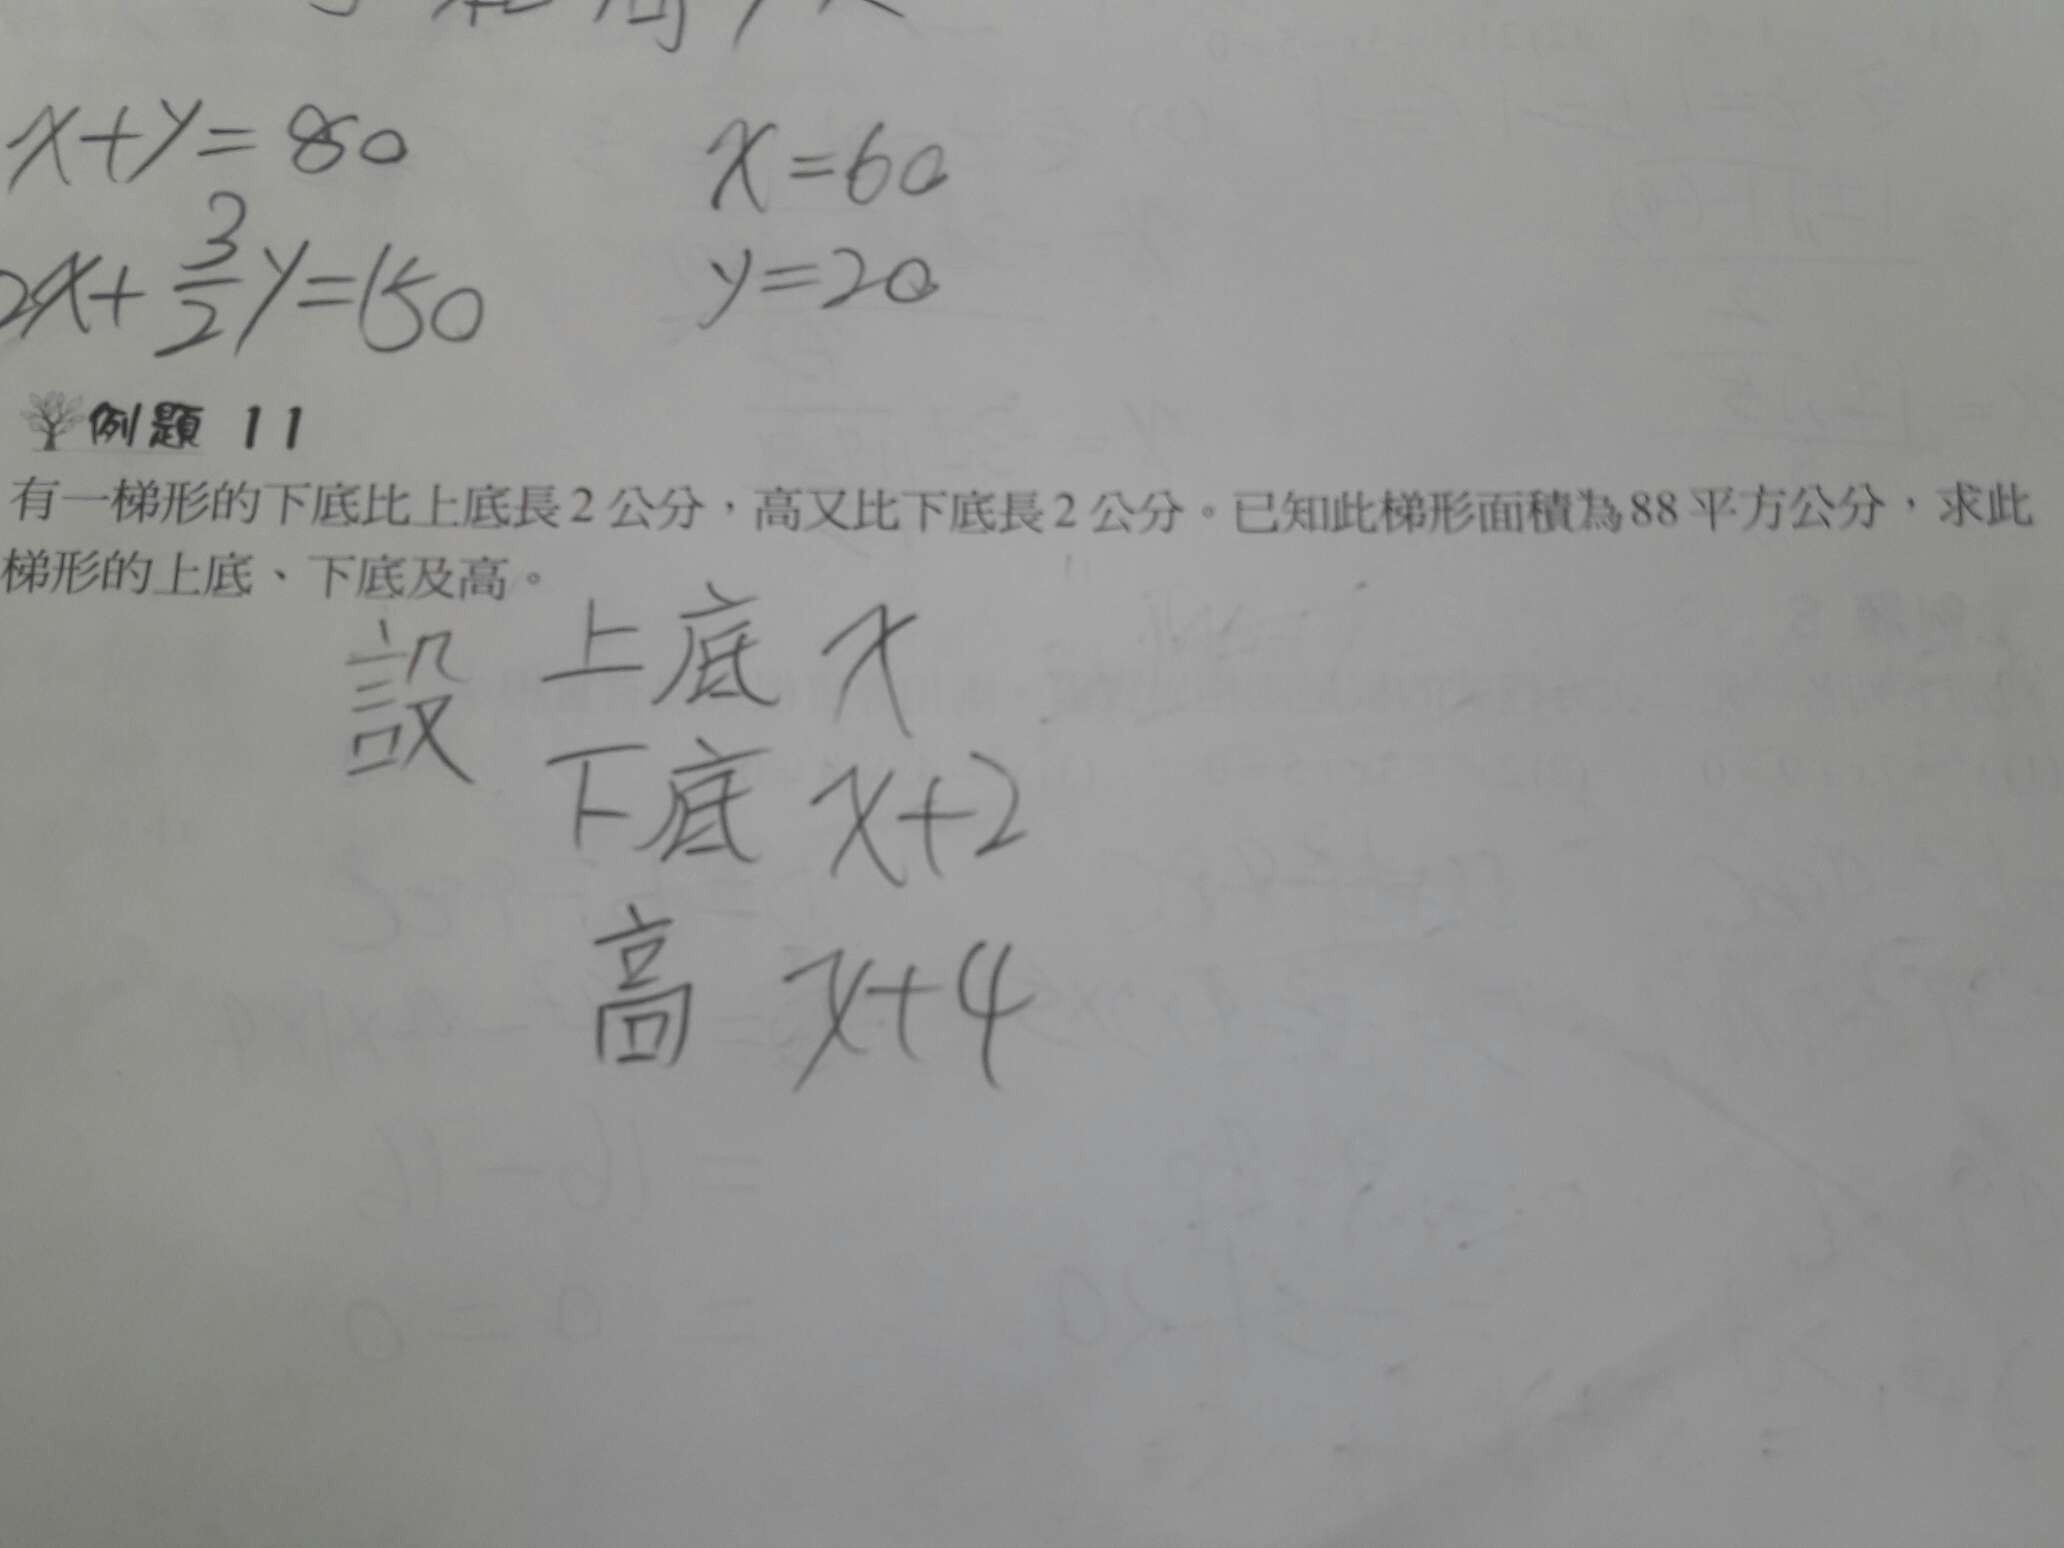 x+y=80
x=60
2x+3/2y=150
y=20
例題 11
有一梯形的下底比上底長2公分,高又比下底長2公分。已知此梯形面積為88平方公分,求此
梯形的上底、下底及高。
設 上底 x
下底 x+2
高 x+4